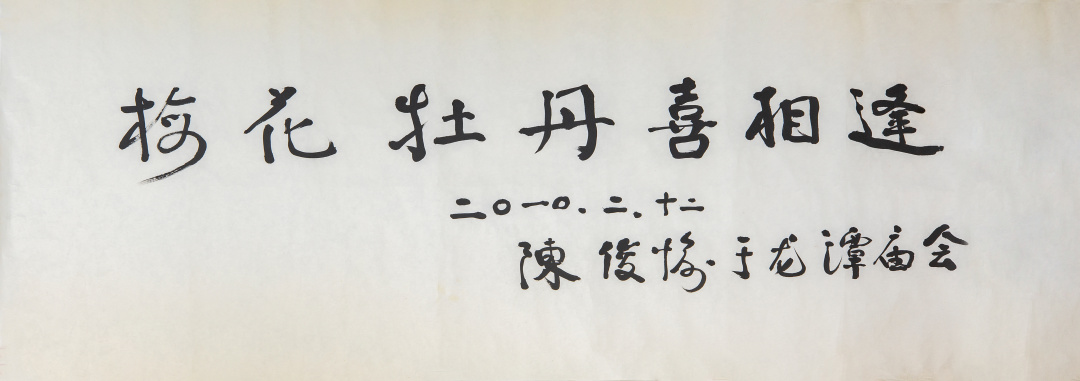 梅花牡丹喜相逢
二〇一〇.二.十二
陳俊愉于龙潭庙会